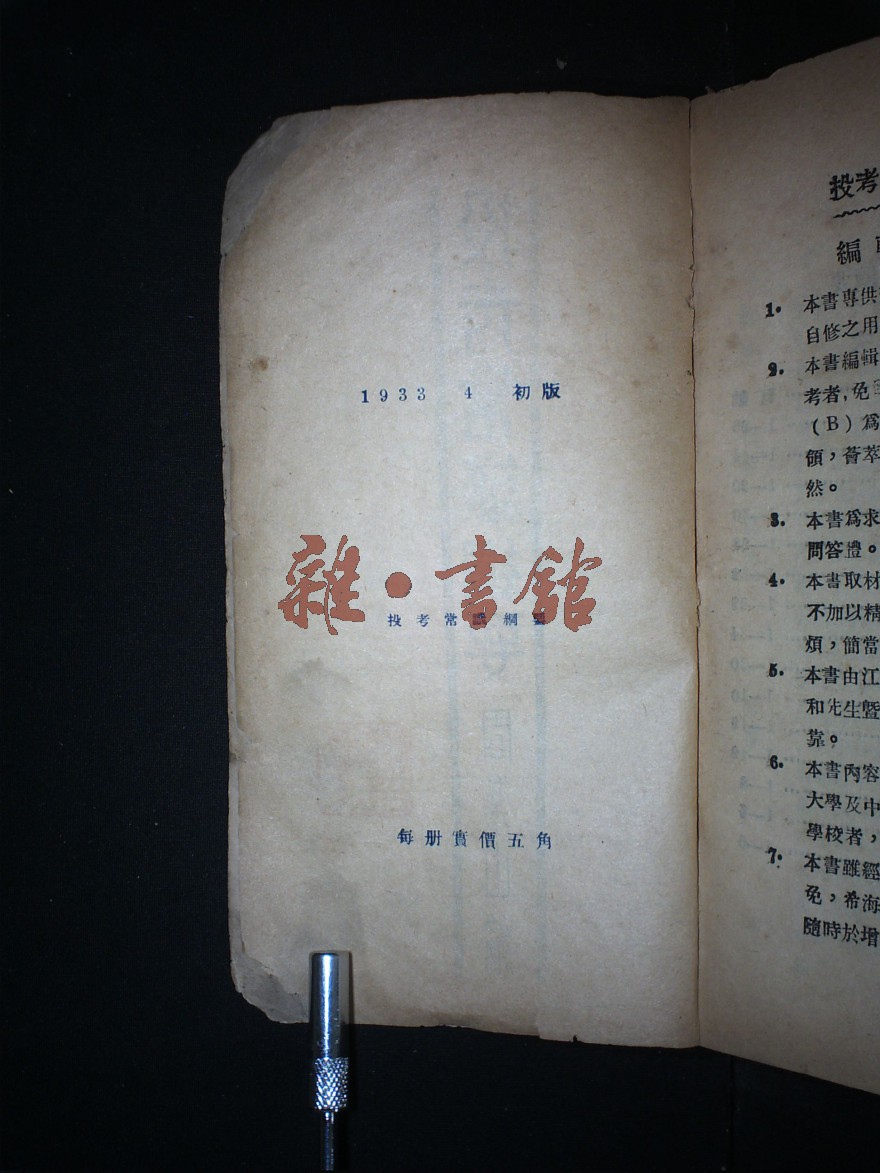 1933 4 初版
雜·書館
投考常識綱要
每册實價五角
投考
編
1. 本書專供
自修之用
2. 本書編輯
考者，免
(B)爲
領，薈萃
然。
3. 本書爲求
問答體。
4. 本書取材
不加以精
煩，簡當
5. 本書由江
和先生暨
靠。
6. 本書內容
大學及中
學校者，
7. 本書雖經
免，希海
隨時於增